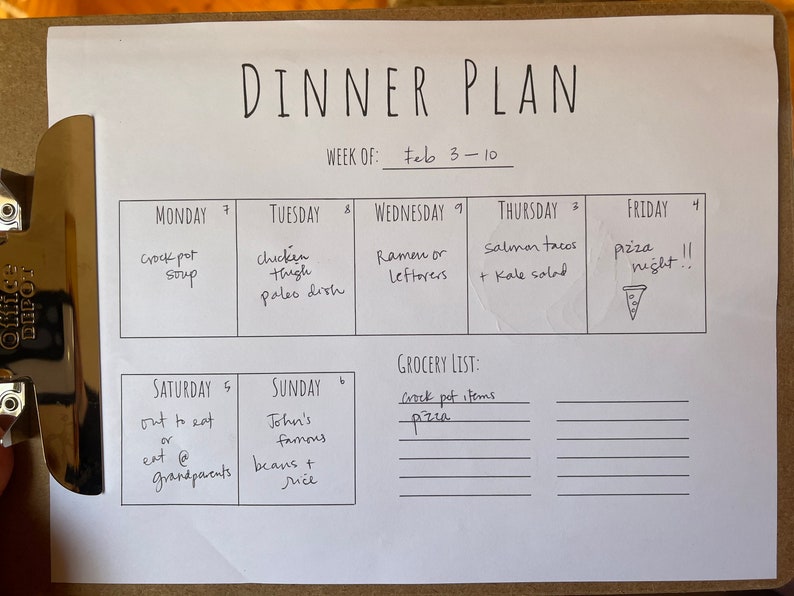 DINNER PLAN
WEEK OF: Feb 3-10
MONDAY 7
crockpot
soup
TUESDAY 8
chicken
thigh
paleo dish
WEDNESDAY 9
Ramen or
leftovers
THURSDAY 3
salmon tacos
+ kale salad
FRIDAY 4
pizza
night!!
SATURDAY 5
out to eat
or
eat @
grandparents
SUNDAY 6
John's
famous
beans +
rice
GROCERY LIST:
crock pot items
pizza
Office
DEPOT